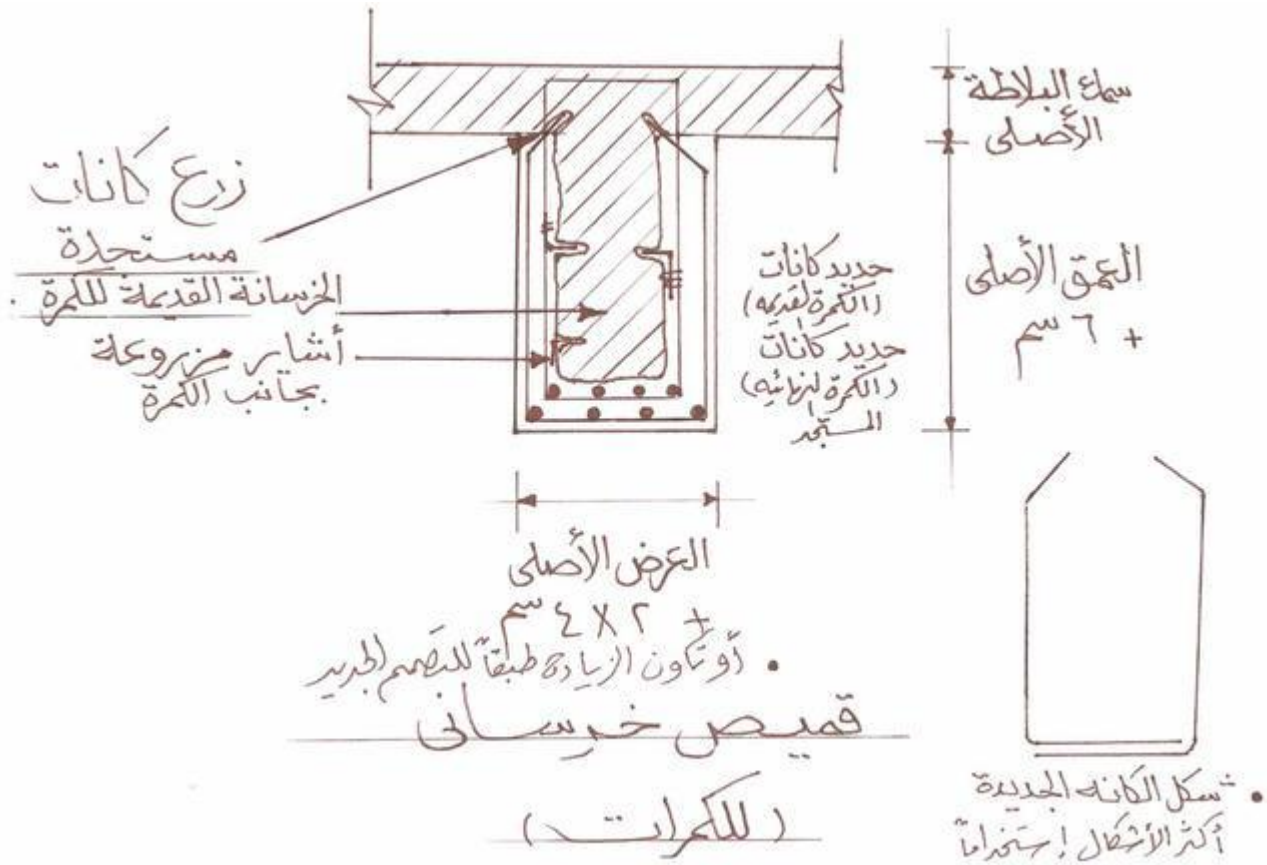 سمك البلاطة
الأصلى
زرع كانات
مستجدة
الخرسانة القديمة للكمرة
أشاير مزروعة
بجانب الكمرة
حديد كانات
(الكمرة القديمه)
حديد كانات
(الكمرة النهائيه)
المستجد
العمق الأصلى
+ ٦ سم
العرض الأصلى
+ ٢ × ٤ سم
• أو تكون الزيادة طبقاً للتصميم الجديد
قميص خرسانى
(للكمرات)
• شكل الكانه الجديدة
أكثر الأشكال إستخداماً